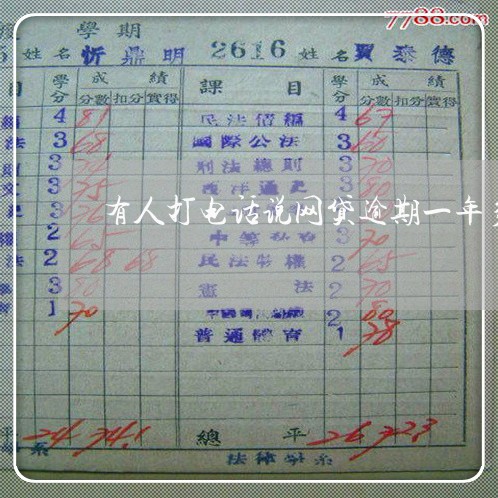 7788.com
學期
姓名 忻鼎明 2616 姓名 賈泰德
目 學分 成績 課目 學分 成績
分數 扣分 實得 分數 扣分 實得
4 81 民法債編 4 67
法 3 68 國際公法 3 60
3 刑法總則 3 70
3 75 西洋通史 3 80
有人打电话说网贷逾期一年多
2 65 3 70
法 2 68 68 民法物權 2 65
3 80 憲法 2 70
1 70 2 80
普通體育 1 78
24 74.1 總平 26 72.3
法律學系